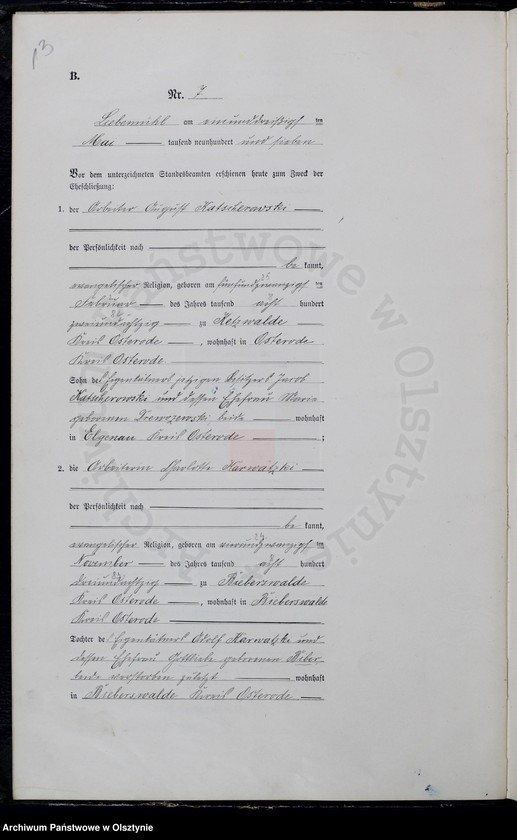 13
B.
Nr. 7
Liebemühl am einunddreißigs ten
Mai tausend neunhundert und sieben
Vor dem unterzeichneten Standesbeamten erschienen heute zum Zweck der
Eheschließung:
1. der Arbeiter August Katscherowski
der Persönlichkeit nach
be kannt,
evangelischer Religion, geboren am fünfundzwanzigs ten
25
Februar des Jahres tausend acht hundert
82
zweiundachtzig zu Ketzwalde
Kreis Osterode, wohnhaft in Osterode
Kreis Osterode
Sohn des Eigentümers jetzigen Besitzers Jacob
Katscherowski und dessen Ehefrau Marie
geborenen Drewczewski beide wohnhaft
in Elgenau Kreis Osterode ;
2. die Arbeiterin Charlotte Karwatzki
der Persönlichkeit nach
be kannt,
evangelischer Religion, geboren am vierundzwanzigs ten
24
November des Jahres tausend acht hundert
83
dreiundachtzig zu Bieberswalde
Kreis Osterode, wohnhaft in Bieberswalde
Kreis Osterode
Tochter des Eigentümers Adolf Karwatzki und
dessen Ehefrau Gottliebe geborenen Biber
beide verstorben zuletzt wohnhaft
in Bieberswalde Kreis Osterode
Archiwum Państwowe w Olsztynie
Archiwum Państwowe w Olsztynie